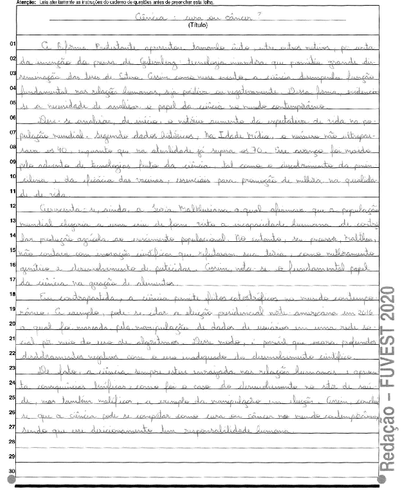 Atenção: Leia atentamente as instruções do caderno de questões antes de preencher esta folha.
Ciência: cura ou câncer?
(Título)
01 A Reforma Protestante apresentou, tamanho êxito, entre outros motivos, por conta
02 da invenção da prensa de Gutenberg, tecnologia que permitiu grande
03 das teses de Lutero. Assim como nesse evento, a ciência desempenha função
04 fundamental nas relações humanas, seja positiva ou negativamente. Dessa forma,
05 se a necessidade de analisar o papel da ciência no mundo contemporâneo.
06 Deve-se analisar, de início, o notório aumento da expectativa de vida na po-
07 pulação mundial. Segundo dados históricos, na Idade Média, o número não ultrapas-
08 sava os 40, enquanto que na atualidade já supera os 70. Esse avanço foi marcado
09 pelo advento de tecnologias frutos da ciência, tal como o
10 e a das vacinas, essenciais para promoção de melhoria na qualida-
11 de de vida.
12 Acrescenta-se, ainda, a Teoria Malthusiana a qual afirmava que a população
13 mundial chegaria a uma era de fome frente a incapacidade humana de
14 produção agrícola ao crescimento populacional. No entanto, se Malthus,
15 não contava com inovações científicas que tese, como melhoramento
16 genético e desenvolvimento de pesticidas. Assim nota-se o fundamental papel
17 da ciência na de alimentos.
18 Em contrapartida, a ciência possui efeitos catastróficos no mundo contempo-
19 râneo. A exemplo, pode-se citar a eleição presidencial norte-americana em 2016,
20 a qual foi marcada pela manipulação de dados de usuários em uma rede so-
21 cial por meio do uso de algoritmos. Desse modo, é possível que ocorra profundos
22 desdobramentos negativos com o uso inadequado do desenvolvimento científico.
23 De fato, a ciência sempre esteve nas relações humanas e
24 consequências benéficas como foi o caso do desenvolvimento na área da saú-
25 de, mas também maléficas, a exemplo da manipulação em eleição. Assim,
26 se que a ciência pode se como cura ou câncer no mundo contemporâneo
27 sendo que seu direcionamento é uma responsabilidade humana.
28
29
30
Redação – FUVEST 2020